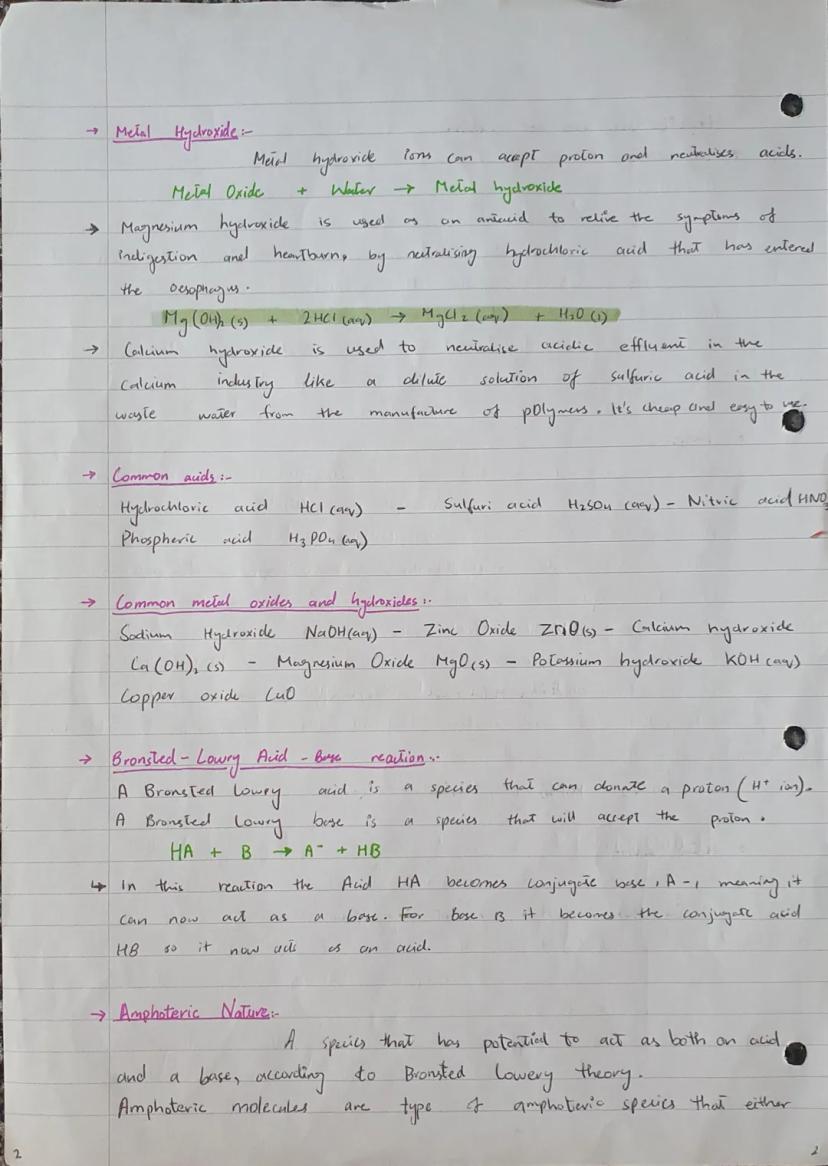 → Metal Hydroxide:-
Metal hydroxide ions can accept proton and neutralises acids.
Metal Oxide + Water → Metal hydroxide
→ Magnesium hydroxide is used as an antacid to relive the symptoms of
indigestion and heartburn, by neutralising hydrochloric acid that has entered
the oesophagus.
Mg(OH)2 (s) + 2HCl (aq) → MgCl2 (aq) + H2O (l)
→ Calcium hydroxide is used to neutralise acidic effluent in the
calcium industry like a dilute solution of sulfuric acid in the
waste water from the manufacture of polymers. It's cheap and easy to use.
→ Common acids:-
Hydrochloric acid HCl (aq) - Sulfuri acid H2SO4 (aq) - Nitric acid HNO3
Phospheric acid H3PO4 (aq)
→ Common metal oxides and hydroxides:-
Sodium Hydroxide NaOH(aq) - Zinc Oxide ZnO(s) - Calcium hydroxide
Ca(OH)2 (s) - Magnesium Oxide MgO(s) - Potassium hydroxide KOH (aq)
Copper oxide CuO
→ Bronsted-Lowry Acid-Base reaction:-
A Bronsted Lowry acid is a species that can donate a proton (H+ ion).
A Bronsted Lowry base is a species that will accept the proton.
HA + B → A- + HB
↳ In this reaction the Acid HA becomes conjugate base, A-, meaning it
can now act as a base. For base B it becomes the conjugate acid
HB so it now acts as an acid.
→ Amphoteric Nature:-
A species that has potential to act as both an acid
and a base, according to Bronsted Lowery theory.
Amphoteric molecules are type of amphoteric species that either
2 2